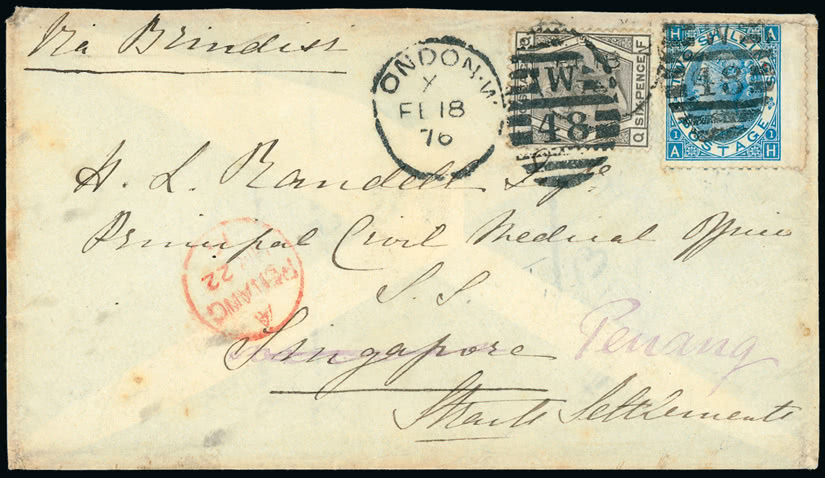 Via Brindisi
LONDON·W
X
FE 18
76
W
48
SIX PENCE
Q
F
H
A
TWO SHILLINGS
48
POSTAGE
1
1
A
H
H. L. Randell Esqre
Principal Civil Medical Officer
S. S.
Singapore Penang
Straits Settlements
PENANG
A
22